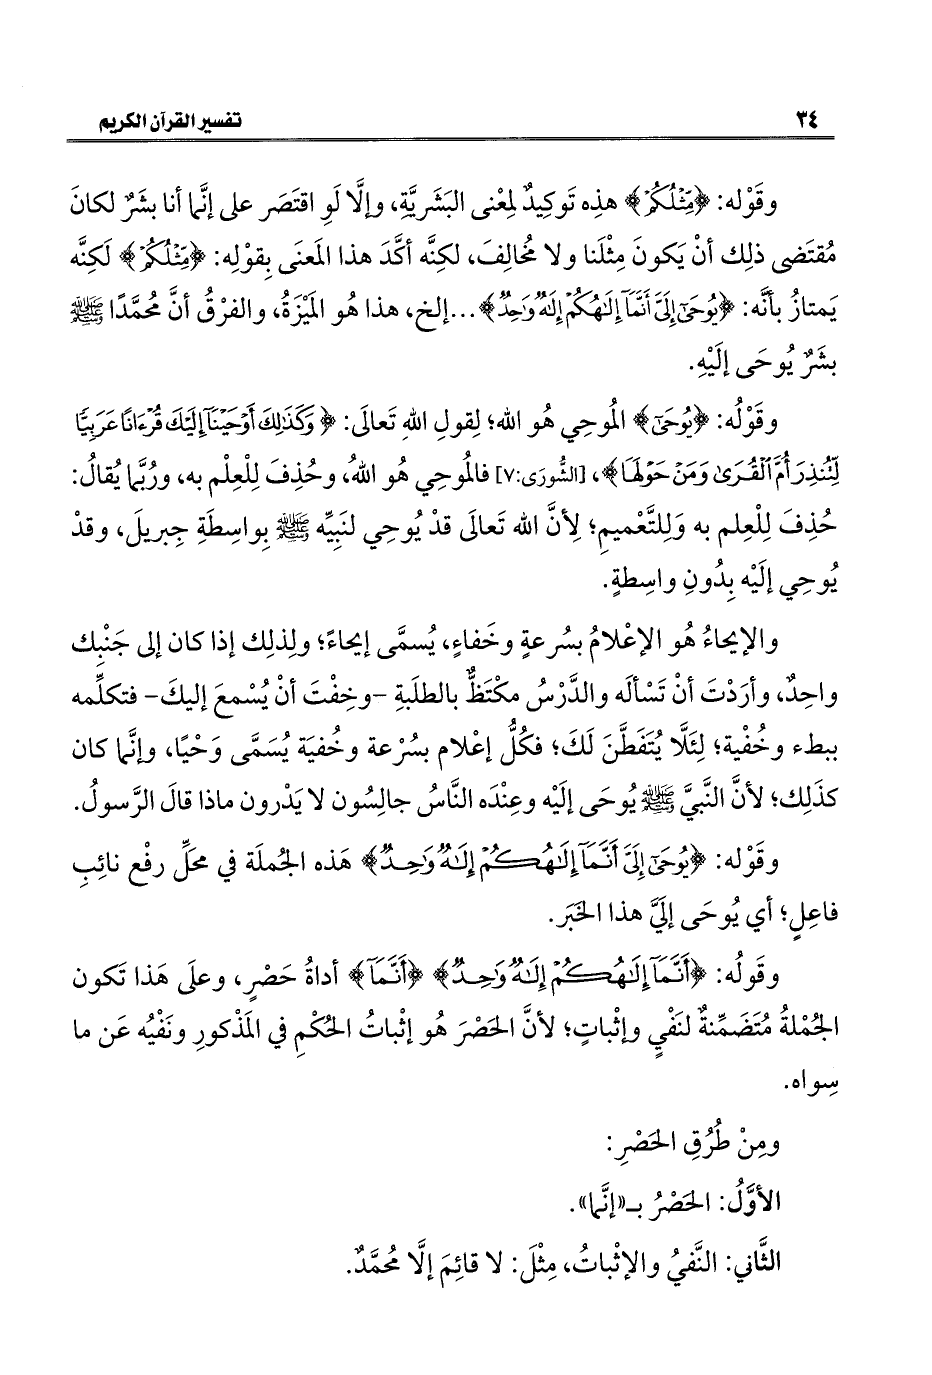 ٣٤ تفسير القرآن الكريم
وقَوْله: ﴿مِّثْلُكُمْ﴾ هذِه تَوكِيدٌ لِمعْنى البَشَريَّةِ، وإلَّا لَوِ اقتَصَر على إنَّما أنا بشَرٌ لكانَ
مُقتَضى ذلِك أنْ يَكونَ مِثْلَنا ولا مُخالِفَ، لكِنَّه أكَّدَ هذا المَعنَى بِقولِه: ﴿مِّثْلُكُمْ﴾ لكِنَّه
يَمتازُ بأنَّه: ﴿يُوحَىٰٓ إِلَىَّ أَنَّمَآ إِلَٰهُكُمْ إِلَٰهٌ وَٰحِدٌ﴾...إلخ، هذا هُو المَيْزَةُ، والفرْقُ أنَّ مُحمَّدًا ﷺ
بشَرٌ يُوحَى إلَيْهِ.
وقَوْلُه: ﴿يُوحَىٰٓ﴾ المُوحِي هُو الله؛ لِقولِ اللهِ تَعالَى: ﴿وَكَذَٰلِكَ أَوْحَيْنَآ إِلَيْكَ قُرْءَانًا عَرَبِيًّا
لِّتُنذِرَ أُمَّ ٱلْقُرَىٰ وَمَنْ حَوْلَهَا﴾، [الشُّورَى:٧] فالمُوحِي هُو اللهُ، وحُذِفَ لِلْعِلْم به، ورُبَّما يُقالُ:
حُذِفَ لِلْعِلم به وَلِلتَّعْميمِ؛ لِأنَّ الله تَعالَى قدْ يُوحِي لنَبِيِّه ﷺ بِواسِطَةِ جِبريلَ، وقدْ
يُوحِي إلَيْه بِدُونِ واسِطةٍ.
والإيحاءُ هُو الإعْلامُ بسُرعةٍ وخَفاءٍ، يُسمَّى إيحاءً؛ ولِذلِك إذا كان إلى جَنْبِك
واحِدٌ، وأرَدْتَ أنْ تَسْألَه والدَّرْسُ مكْتَظٌّ بالطلَبةِ -وخِفْتَ أنْ يُسْمعَ إليكَ- فتكلِّمه
ببطء وخُفْية؛ لِئَلَّا يُتَفَطَّنَ لَكَ؛ فكُلُّ إعْلام بسُرْعة وخُفيَة يُسَمَّى وَحْيًا، وإنَّما كان
كذَلِك؛ لأنَّ النَّبيَّ ﷺ يُوحَى إلَيْه وعِنْدَه النَّاسُ جالِسُون لا يَدْرون ماذا قالَ الرَّسولُ.
وقَوْله: ﴿يُوحَىٰٓ إِلَىَّ أَنَّمَآ إِلَٰهُكُمْ إِلَٰهٌ وَٰحِدٌ﴾ هَذه الجُملَة في مَحَلِّ رفْع نائِبِ
فاعِلٍ؛ أي يُوحَى إليَّ هذا الخَبَر.
وقَولُه: ﴿أَنَّمَآ إِلَٰهُكُمْ إِلَٰهٌ وَٰحِدٌ﴾ ﴿أَنَّمَآ﴾ أداةُ حَصْرٍ، وعلَى هَذا تَكون
الجُمْلةُ مُتَضَمِّنةٌ لنَفْيٍ وإثْباتٍ؛ لأنَّ الحَصْرَ هُو إثْباتُ الحُكْمِ في المَذْكورِ ونَفْيُه عَن ما
سِواه.
ومِنْ طُرُقِ الحَصْرِ:
الأوَّلُ: الحَصْرُ بـ«إنَّما».
الثَّاني: النَّفيُ والإثْباتُ، مِثْلَ: لا قائِمَ إلَّا مُحمَّدٌ.